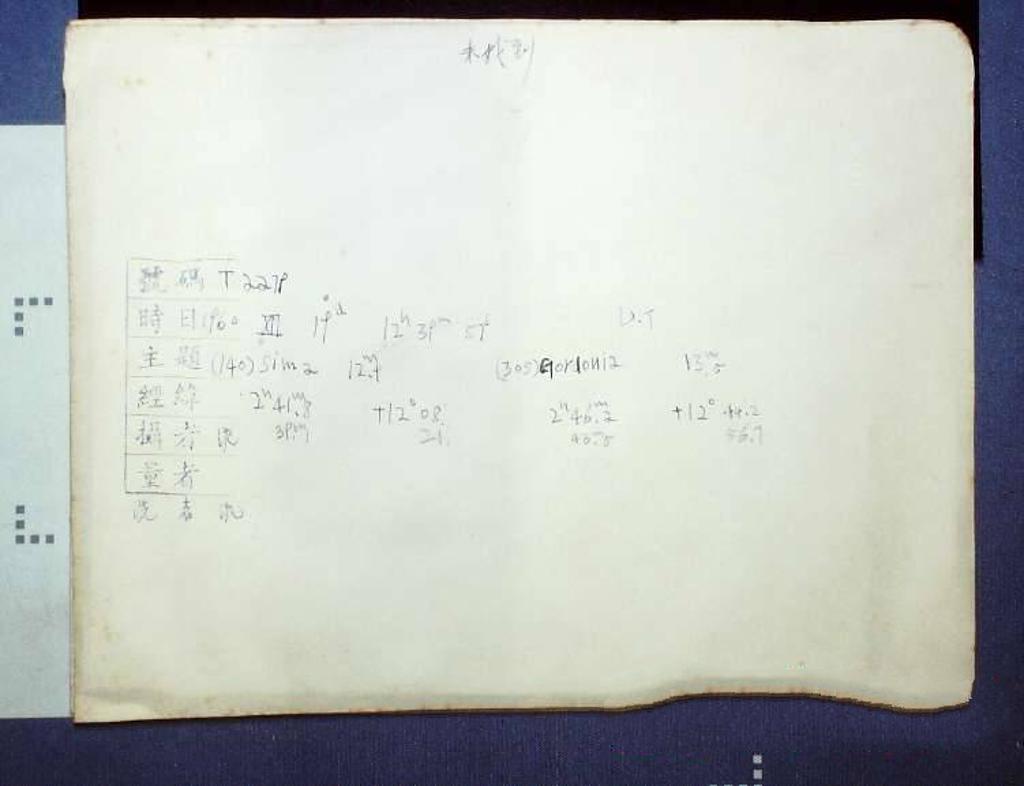 未找到
號碼 T 2279
時日 1960 XII 19d 12h 39m 59s U.T
主題 (140) Sima 12m.4 (305) Gordonia 13m.5
經緯 2h 41m.8 +12° 08. 2h 46m.2 +12° 44.2
攝者 沈 39m.1 21. 40.5 56.7
量者
洗者 沈